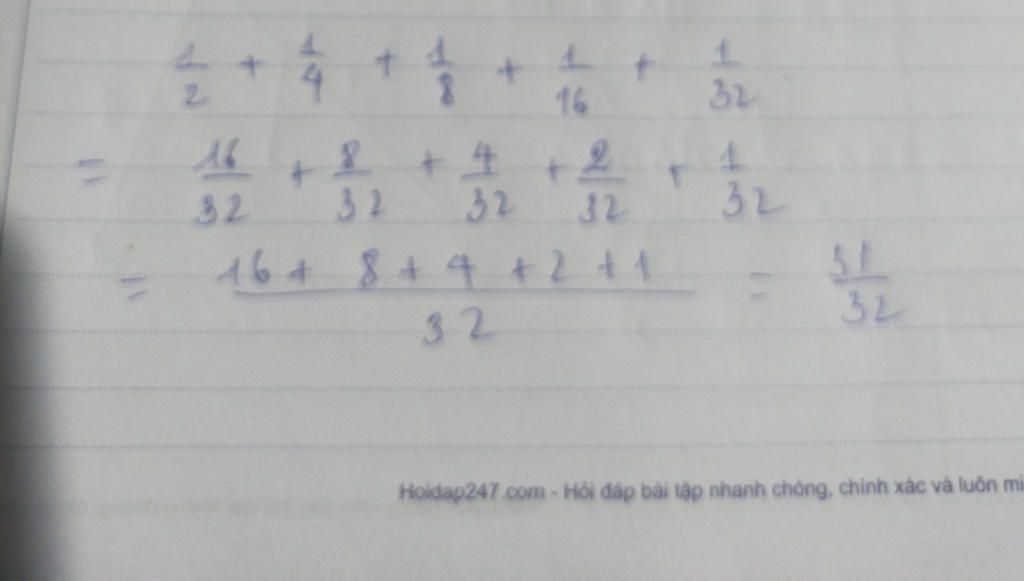 1/2 + 1/4 + 1/8 + 1/16 + 1/32
= 16/32 + 8/32 + 4/32 + 2/32 + 1/32
= (16 + 8 + 4 + 2 + 1)/32 = 31/32
Hoidap247.com - Hỏi đáp bài tập nhanh chóng, chính xác và luôn mi